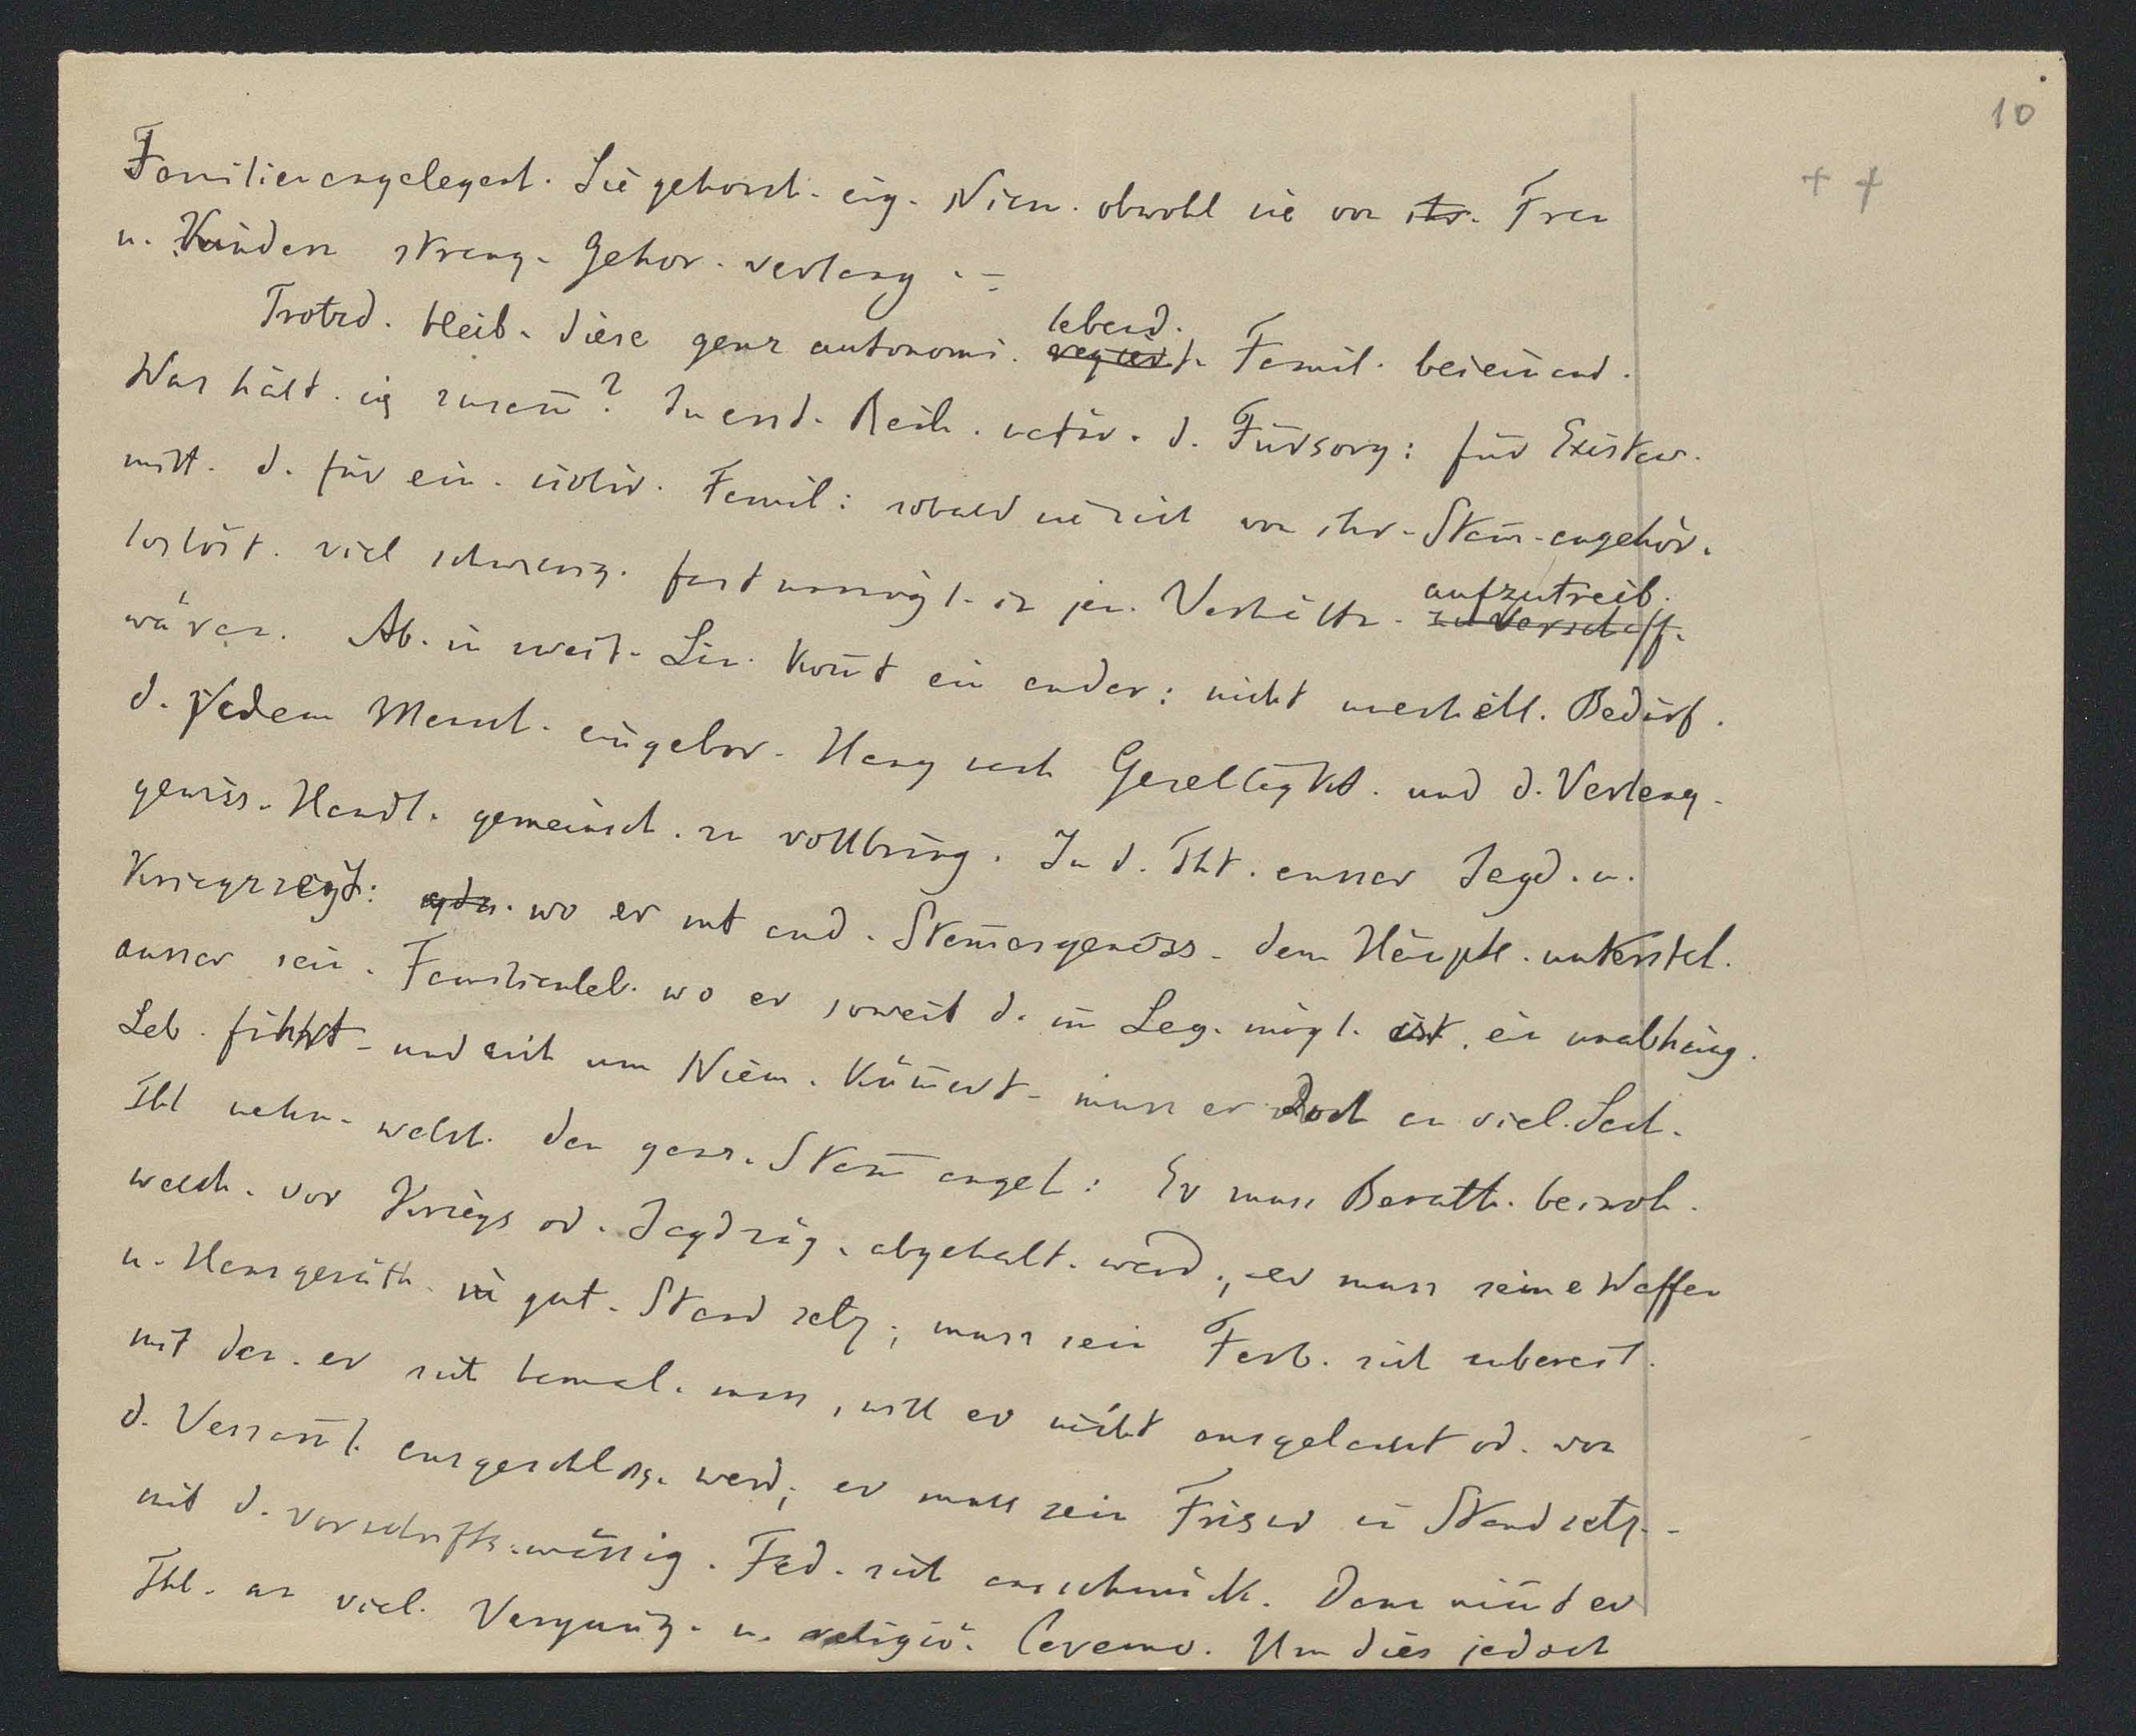 10
+ +
Familienangelegenh. Sie gehorch. eig. Niem. obwohl sie von ihr. Frau
u. Kindern streng. Gehor. verlang.
lebend.
Trotzd. bleib. diese ganz autonom. regiert. Famil. beieinand.
Was hält. sie zusam̄? In erst. Reih. d. Fürsorg: für Existenz.
mitt. d. für ein. isolir. Famil: sobald sie sich von ihr. Stam̄-angehör.
aufzutreib.
loslöst. viel schwierig. fast unmögl. in jen. Verhältn. zu verschaff.
wären. Ab. in zweit. Lin. kom̄t ein ander: nicht materiell. Bedürf.
d. jedem Mensch. eingebor. Hang nach Geselligkt. und d. Verlang.
gewiss. Handl. gemeinsch. zu vollbring. In d. That. ausser Jagd. u.
Kriegszeyt: wo er mt and. Stam̄esgenoss. dem Häuptl. untersteh.
ausser sein. Familienleb. wo er soweit d. im Leg. mögl. ist. ein unabhäng.
Leb. führt - und sich um Niem. küm̄ert - muss er doch an viel. Sach.
Thl nehm. welch. den ganz. Stam̄ angeh: Er muss Berath. beiwoh.
welch. vor Kriegs od. Jagdzüg. abgehalt. werd., er muss seine Waffen
u. Hausgeräth. in gut. Stand setz; muss sein Farb. sich zubereit.
mit den. er sich bemal. muss, will er nicht ausgelacht od. von
d. Versam̄l. ausgeschloss. werd; er muss sein Frisur in Stand setz. -
mit d. vorschriftsmässig. Fed. sich ausschmück. Dann nim̄t er
Thl. an viel. Vergnüg. u. religiö. Ceremo. Um dies jedoch